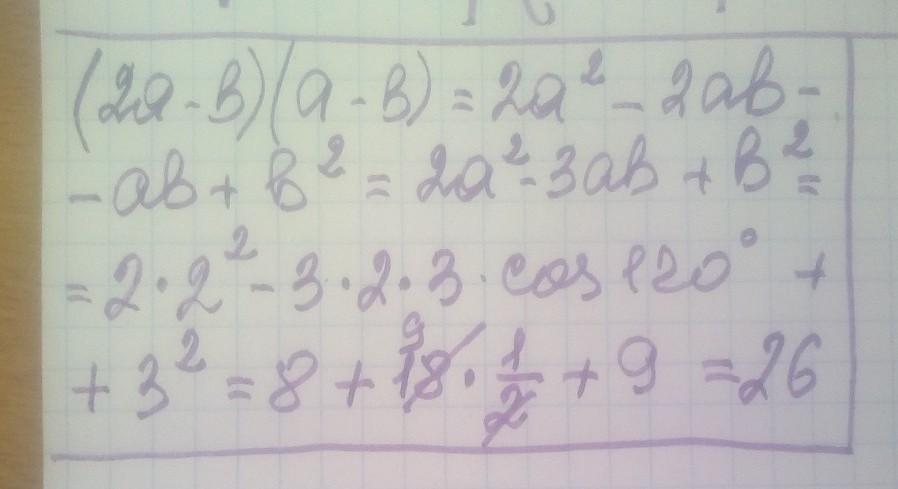 (2a - b)(a - b) = 2a² - 2ab -
- ab + b² = 2a² - 3ab + b² =
= 2 · 2² - 3 · 2 · 3 · cos 120° +
+ 3² = 8 + 18 · 1/2 + 9 = 26